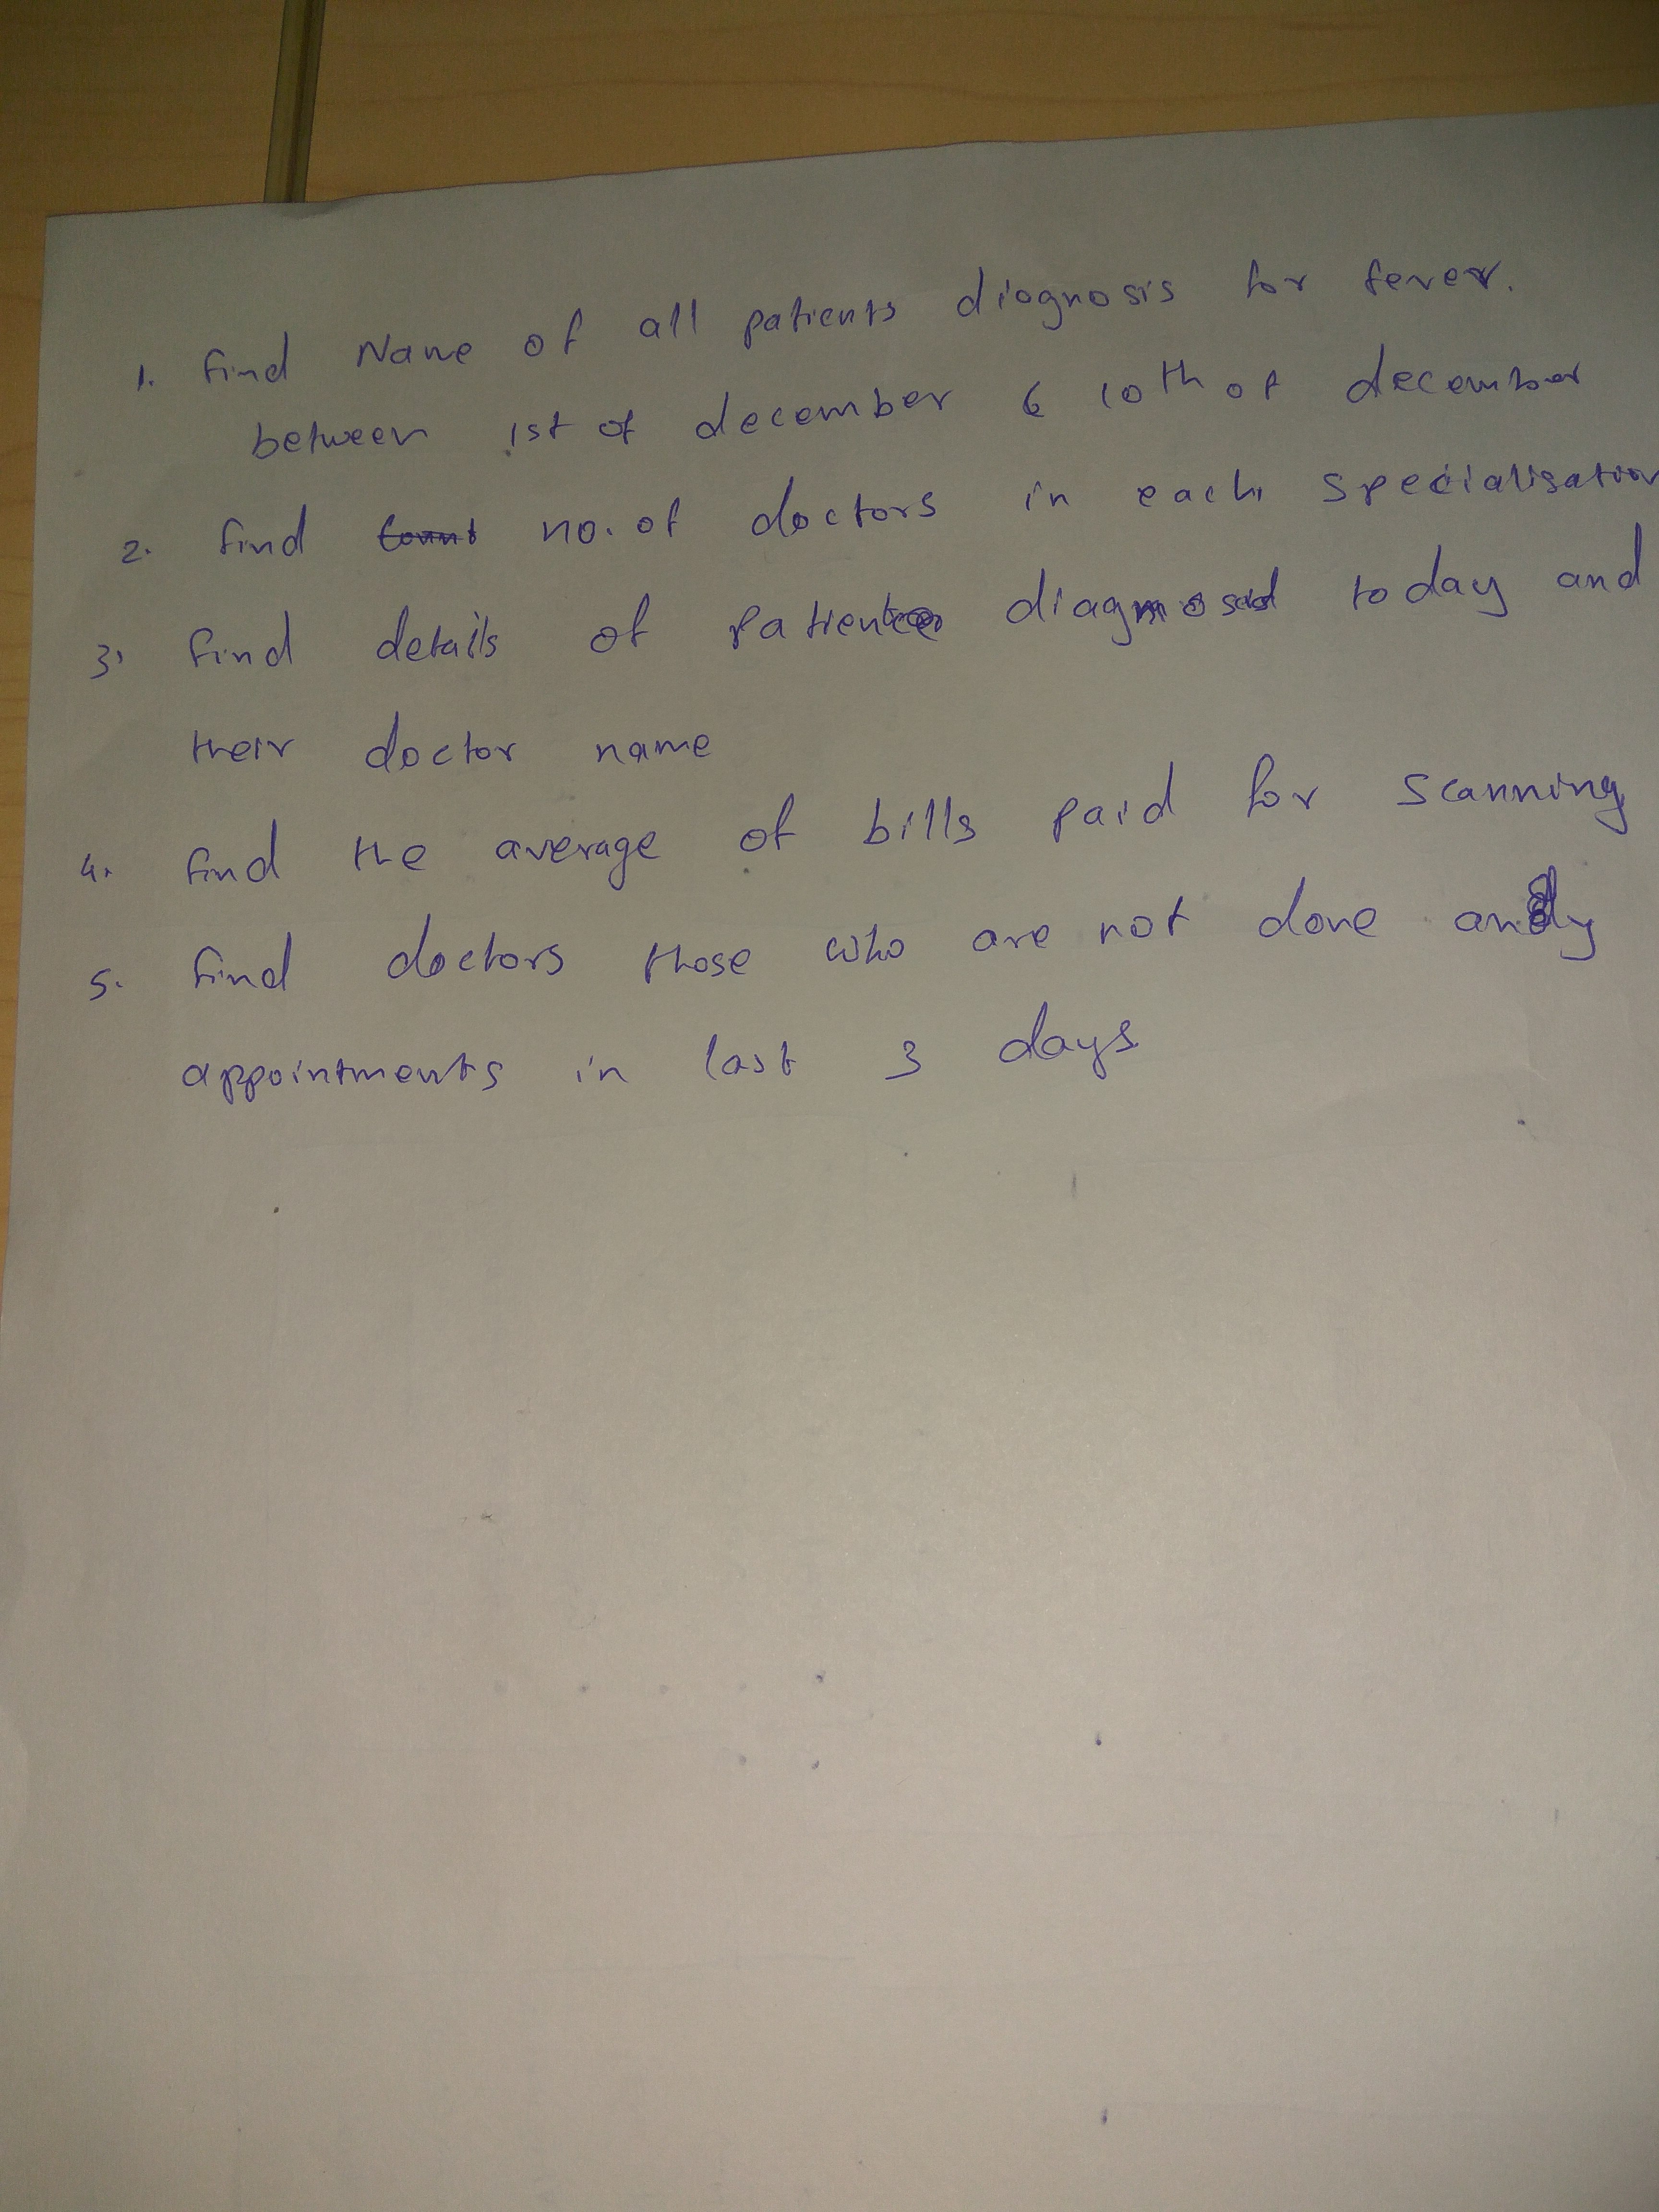 1. Find Name of all patients diagnosis for fever.
between 1st of december & 10th of december
2. find no. of doctors in each specialisation
3. find details of patient diagnosed today and
their doctor name
4. find the average of bills paid for scanning
5. find doctors those who are not done any
appointments in last 3 days